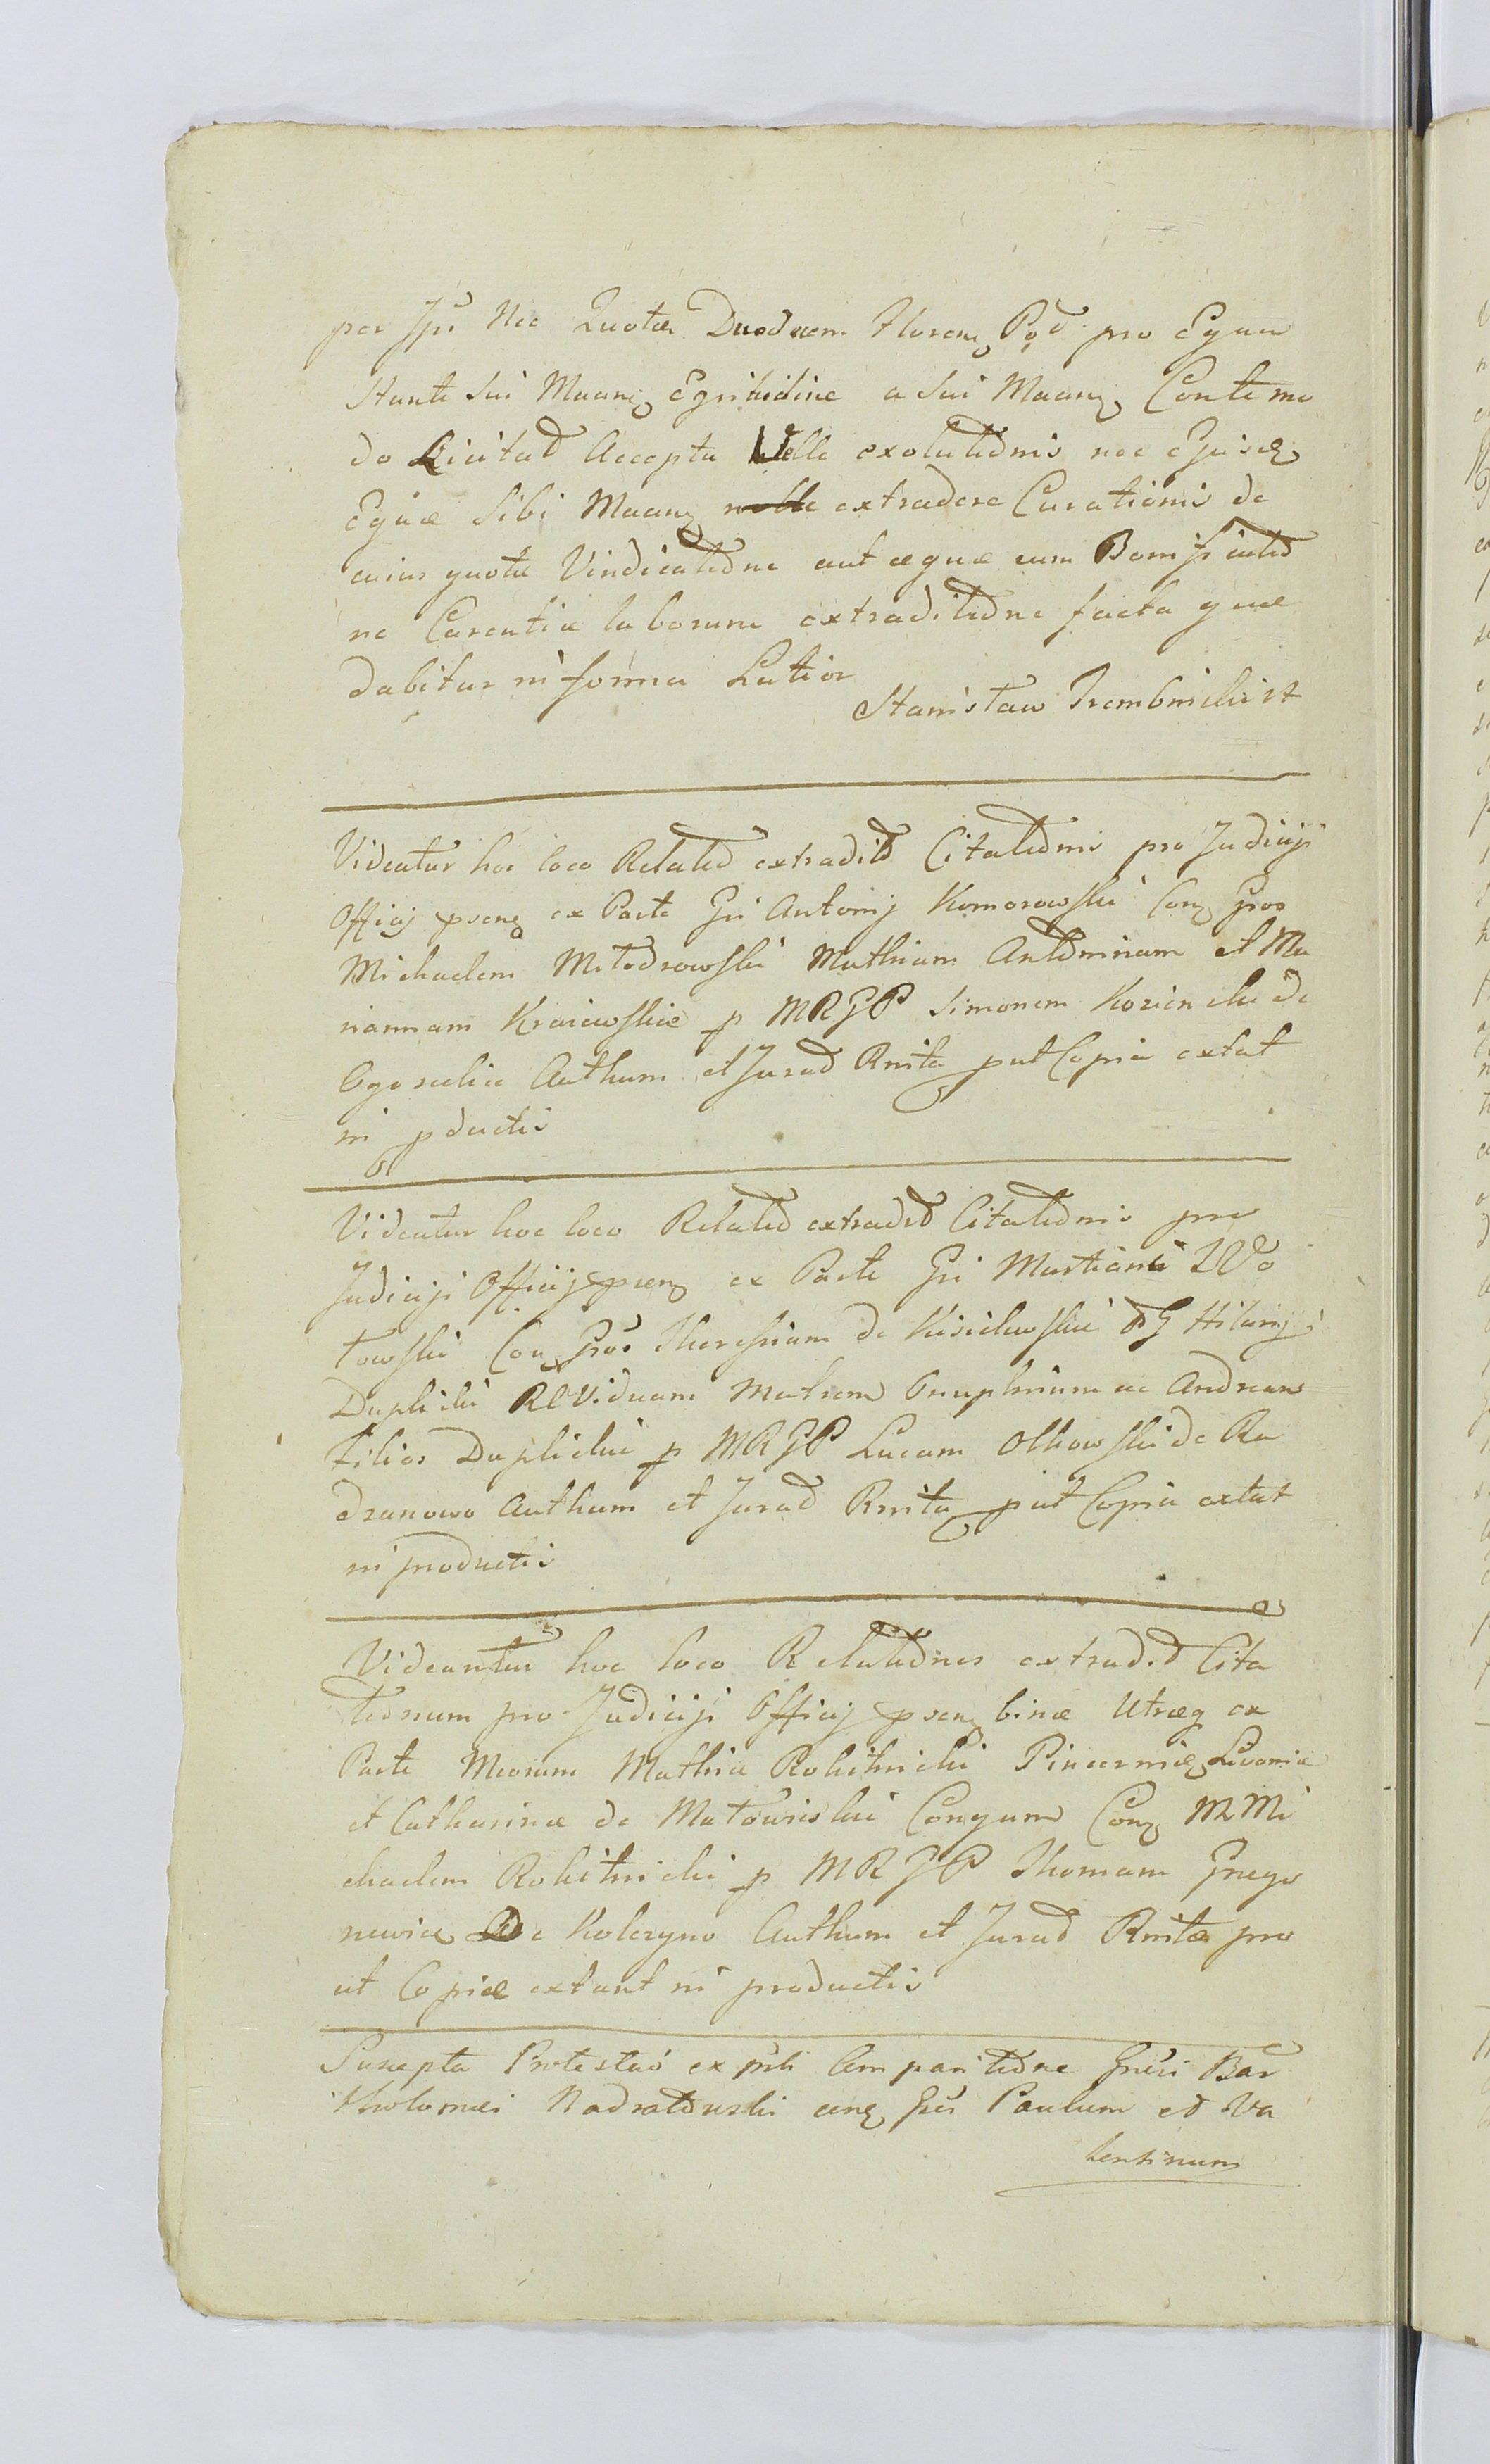 per Ips Nec Quotæ Duodecem Floreno Pod pro Equa
Stante sui Maang Egritudine a sui Maang Conte mo
do Licitat Accepta Velle exolutionis nec Ejusq
Equæ Sibi Maang extradere Curationis de
cuius quota Vindicatione aut æquæ cum Bonificatio
ne Carentiæ laborum extraditione facta quæ
dabitur in forma Latior
Stanisław Trembnicki
Videatur hoc loco Relatio extradit Citationis pro Judicijs
Officij pseng ex Parte Gsi Antonij Komorowski Cong Gsos
Michaelem Młodzowski Mathiam Antoninam et Ma
riannam Kraiewskie p MRGP Simonem Kozienski de
Authum et Jurad Rnita put Copia extat
in pductis
Videatur hoc loco Relatio extradit Citationis pro
Judicijs Officij pseng ex Parte Gsi Martiani
towski Cong Gsos Theresiam de Kisielewskie Hilarij
Duplicki Viduam Matrem Onuphrium ac Andream
Filios Duplickie p MRGP Lucam Olkowski de Ra
dzanowo Authum et Jurad Rnita put Copia extat
in productis
Videantur hoc loco Relationes extradit Cita
tionum pro Judicijs Officij pseng binæ Utræq ex
Parte Meorum Mathiæ Rokitnicki Pincernæ Livoniæ
et Catharinæ de Matowieskie Congum Cong MMi
chaelem Rokitnicki p MRGP Thomam Grego
rewicz De Koleczyno Authum et Jurad Rnitæ pro
ut Copiæ extant in productis
Suscepta Protestaó ex psli Comparitione Gnesi Bar
tholomei cong Gsos Paulum et Va
lentinum